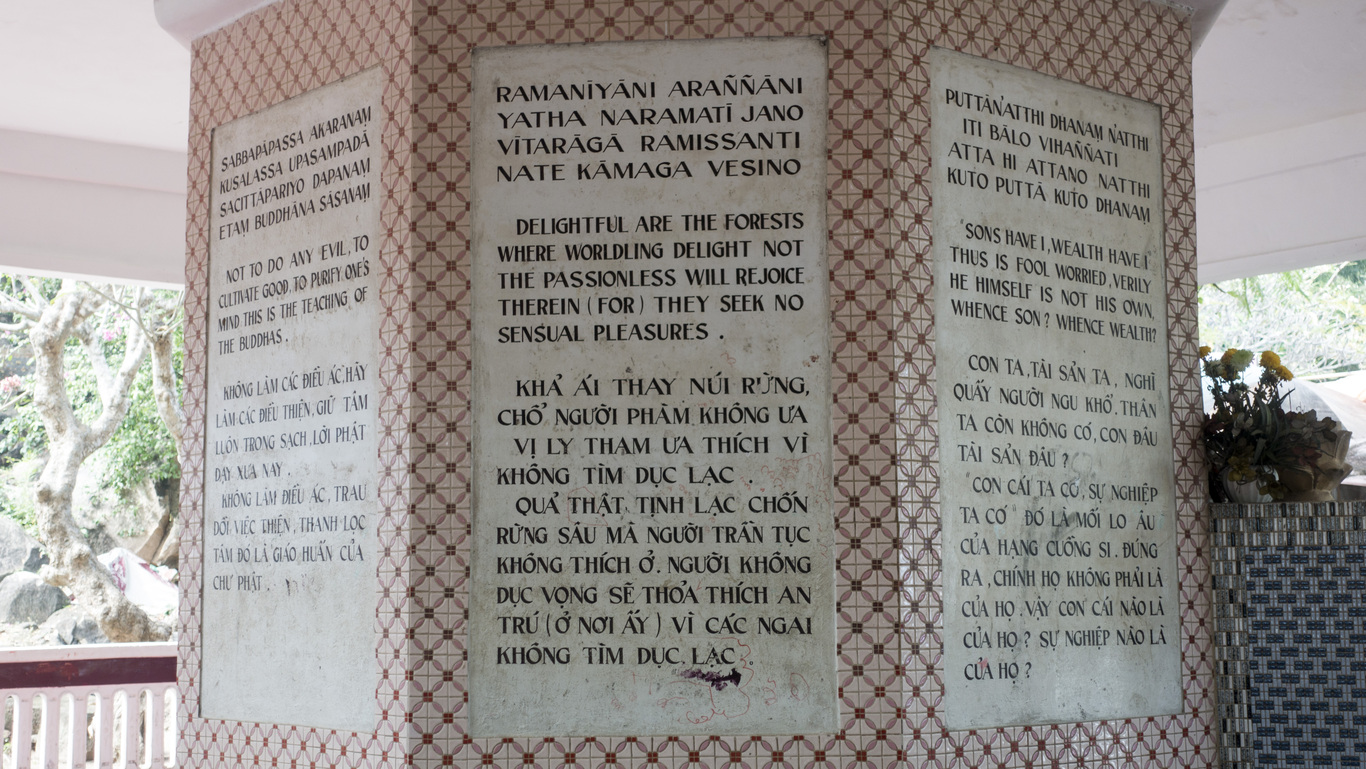 SABBAPÁPASSA AKARANAṂ
KUSALASSA UPASAMPADĀ
SACITTÁPARIYO DAPANAṂ
ETAṂ BUDDHĀNA SÁSANAṂ
NOT TO DO ANY EVIL, TO
CULTIVATE GOOD, TO PURIFY ONE'S
MIND THIS IS THE TEACHING, OF
THE BUDDHAS.
KHÔNG LÀM CÁC ĐIỀU ÁC, HÃY
LÀM CÁC ĐIỀU THIỆN, GIỮ TÂM
LUÔN TRONG SẠCH, LỜI PHẬT
DẠY XƯA NAY.
KHÔNG LÀM ĐIỀU ÁC, TRAU
DỒI VIỆC THIỆN, THANH LỌC
TÂM ĐÓ LÀ GIÁO HUẤN CỦA
CHƯ PHẬT.
RAMANĪYĀNI ARAÑÑĀNI
YATHA NARAMATĪ JANO
VĪTARĀGĀ RAMISSANTI
NATE KĀMAGA VESINO
DELIGHTFUL ARE THE FORESTS
WHERE WORLDLING DELIGHT NOT
THE PASSIONLESS WILL REJOICE
THEREIN (FOR) THEY SEEK NO
SENSUAL PLEASURES.
KHẢ ÁI THAY NÚI RỪNG,
CHỔ NGƯỜI PHÀM KHÔNG ƯA
VỊ LY THAM ƯA THÍCH VÌ
KHÔNG TÌM DỤC LẠC.
QUẢ THẬT, TỊNH LẠC CHỐN
RỪNG SÂU MÀ NGƯỜI TRẦN TỤC
KHÔNG THÍCH Ở. NGƯỜI KHÔNG
DỤC VỌNG SẼ THỎA THÍCH AN
TRÚ (Ở NƠI ẤY) VÌ CÁC NGÀI
KHÔNG TÌM DỤC LẠC.
PUTTĀ'NATTHI DHANAM N'ATTHI
ITI BĀLO VIHAÑÑATI
ATTA HI ATTANO NATTHI
KUTO PUTTĀ KUTO DHANAṂ
"SONS HAVE I, WEALTH HAVE I"
THUS IS FOOL WORRIED, VERILY
HE HIMSELF IS NOT HIS OWN,
WHENCE SON? WHENCE WEALTH?
CON TA, TÀI SẢN TA, NGHĨ
QUẤY NGƯỜI NGU KHỔ, THÂN
TA CÒN KHÔNG CÓ, CON ĐÂU
TÀI SẢN ĐÂU?
"CON CÁI TA CÓ, SỰ NGHIỆP
TA CÓ" ĐÓ LÀ MỐI LO ÂU
CỦA HẠNG CUỒNG SI. ĐÚNG
RA, CHÍNH HỌ KHÔNG PHẢI LÀ
CỦA HỌ. VẬY CON CÁI NÀO LÀ
CỦA HỌ? SỰ NGHIỆP NÀO LÀ
CỦA HỌ?